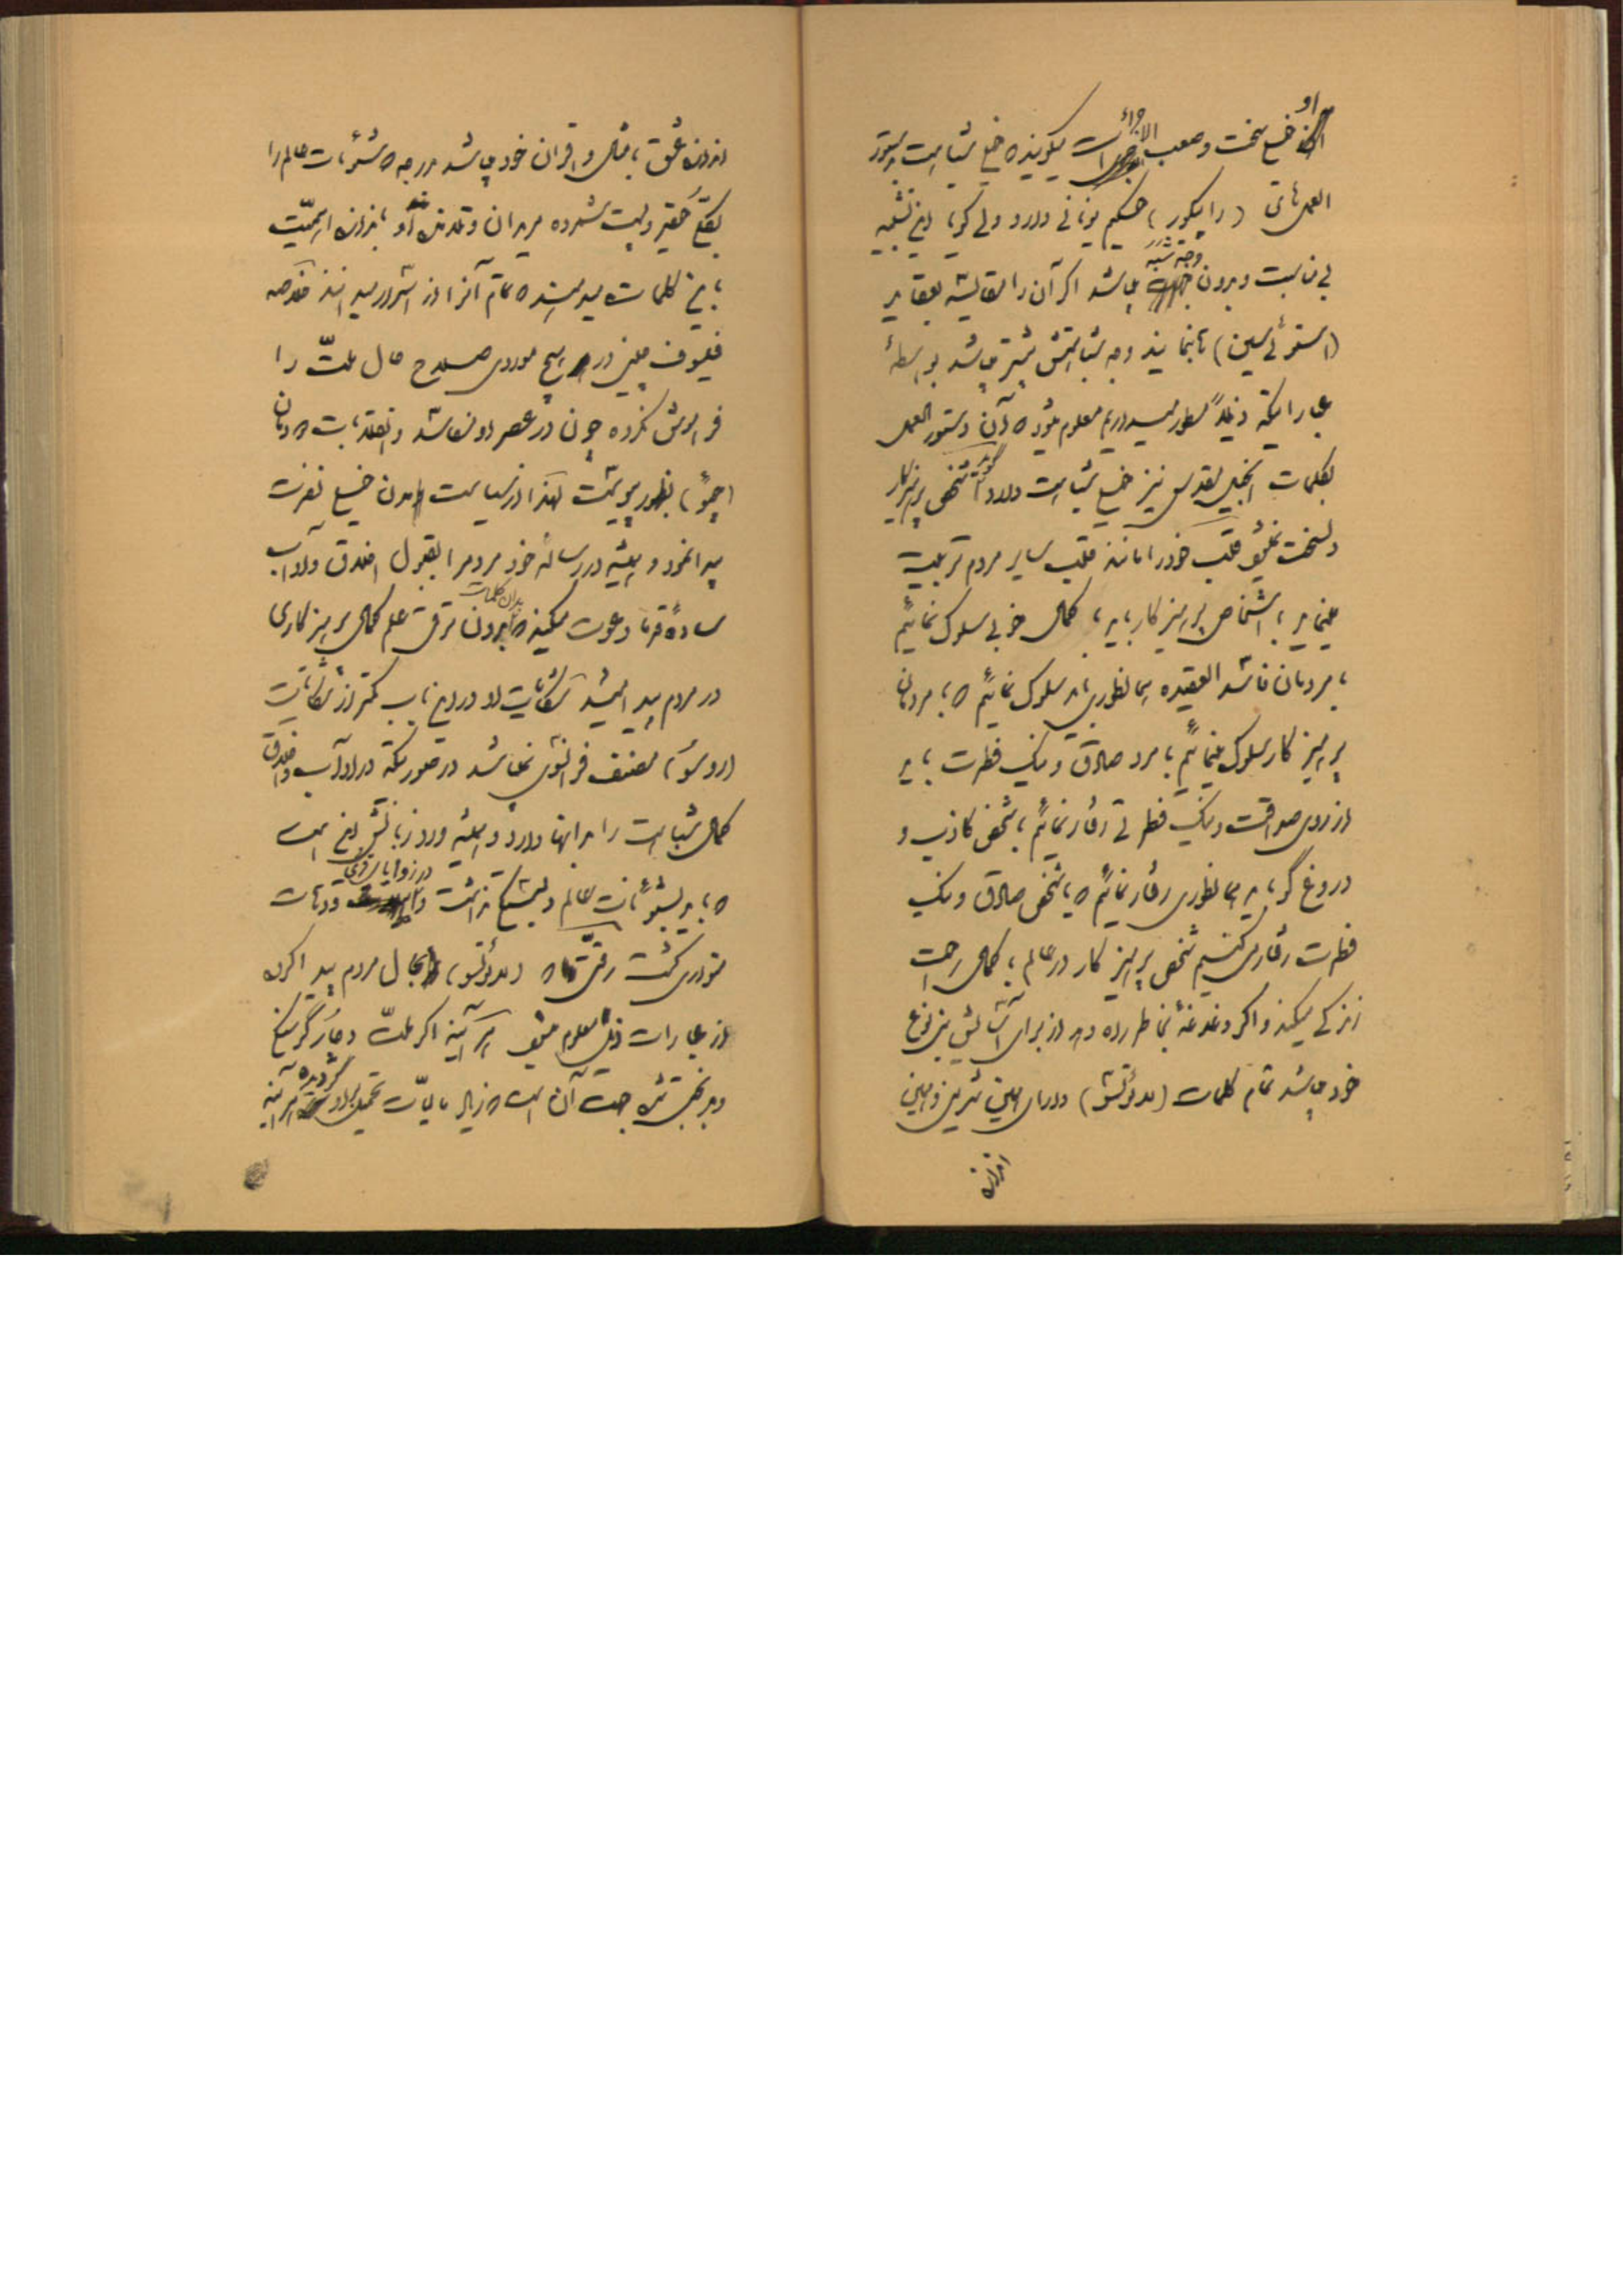 او خیلی سخت و صعب الاجراست میگویند که خیلی شباهت بدستور
العملهای (راپیکور) حکیم یونانی دارد ولی گویا این تشبیه
بی مناسبت و بدون وجه شبه میباشد اگر آن را مقایسه بعقاید
(استوئسین) بنمایند وجه شباهتش بیشتر میباشد بواسطهٔ
عباراتیکه ذیلاً مسطور میداریم معلوم میشود که آن دستور العمل
بکلمات انجیل مقدس نیز خیلی شباهت دارد گوید شخص پرهیزکار
و سخت خلیق قلب خود را مانند قلب سایر مردم تربیت
مینماید با اشخاص پرهیزکار باید با کمال خوبی سلوک نمائیم
با مردمان فاسد العقیده همانطوری باید سلوک نمائیم که با مردمان
پرهیز کار سلوک مینمائیم با مرد صادق و نیک فطرت باید
از روی صداقت و نیک فطرتی رفتار نمائیم با شخص کاذب و
دروغ گو باید همانطوری رفتار نمائیم که با شخص صادق و نیک
فطرت رفتار می کنیم شخص پرهیز کار در عالم با کمال راحت
زندگی میکند و اگر دغدغهٔ بخاطر راه دهد از برای آسایش بنی نوع
خود میباشد تمام کلمات (لائوتسو) دارای همین
اندازه عشق با مثال و اقران خود میباشد هر چه که شئونات عالم را
بکلی حقیر و پست شمرده مریدان و تلامذه او باندازه اهمیت
باین کلمات میدهند که تمام آنرا از اسرار میدانند خلاصه
فیلسوف چینی در هیچ موردی صلاح حال ملت را
فراموش نکرده چون در عصر او فساد و انقلابات
بظهور پیوست لهذا از سیاست خیلی نفرت
پیدا نمود و همیشه در رساله خود مردم را بقبول اخلاق و آداب
ساده قدما دعوت میکند که بدان کلمات بدون ترقی علم کمال پرهیز کاری
در مردم پیدا میشد شکایت او در این باب کمتر از شکایت
(روسو) مصنف فرانسوی نمیباشد در صورتیکه در آداب و اخلاق
کمال شباهت را بدانها دارد و همیشه ورد زبانش این است
که باید بشئونات عالم دلبستگی نداشت و در زوایای قری و دهات
متواری گشت رقتی که (لائوتسو) بحال مردم پیدا کرده
از عبارات ذیل معلوم میشود هر آینه اگر ملت دچار گرسنگی
و بدبختی شده جهت آن است که زیاد مالیات تحمیل بر او گردیده هر آینه